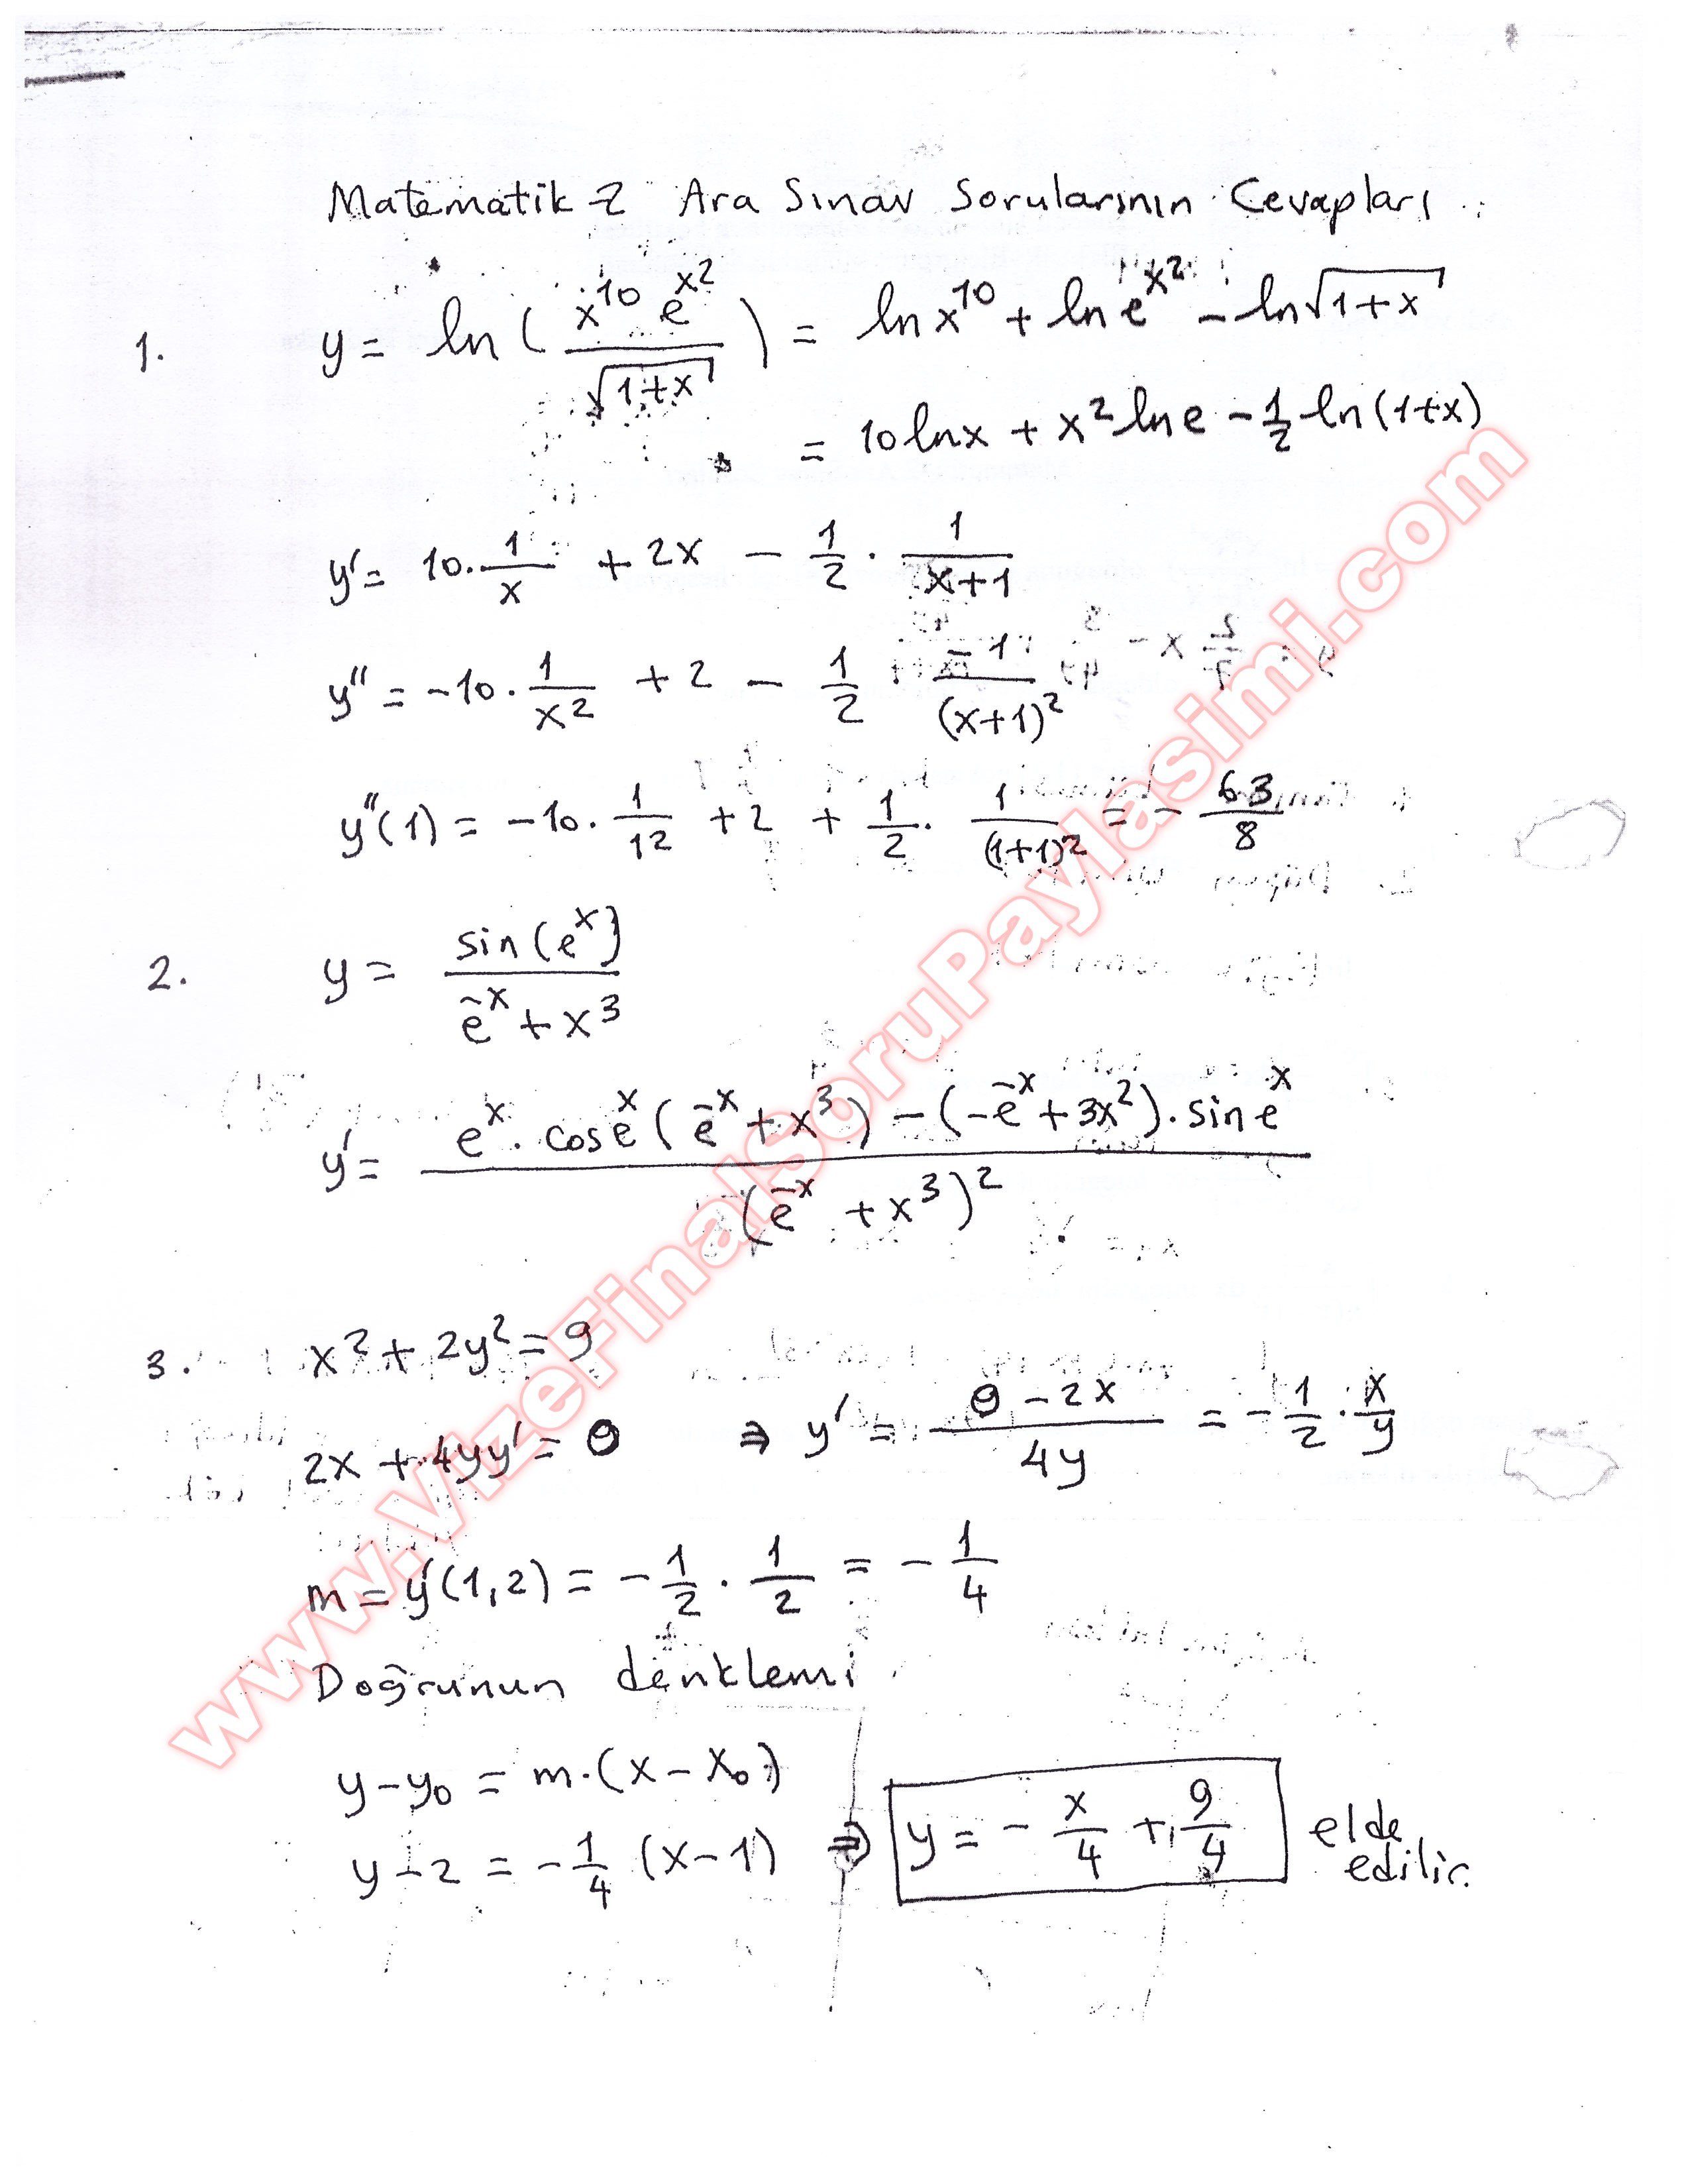 Matematik-2 Ara Sınav Sorularının Cevapları
1. y = ln ( x^10 e^x^2 / √(1+x) ) = ln x^10 + ln e^x^2 - ln √(1+x)
= 10 ln x + x^2 ln e - 1/2 ln (1+x)
y' = 10 · 1/x + 2x - 1/2 · 1/(x+1)
y'' = -10 · 1/x^2 + 2 - 1/2 · -1/(x+1)^2
y''(1) = -10 · 1/1^2 + 2 + 1/2 · 1/(1+1)^2 = - 63/8
2. y = sin(e^x) / (e^-x + x^3)
y' = e^x · cos e^x (e^-x + x^3) - (-e^-x + 3x^2) · sin e^x / (e^-x + x^3)^2
3. x^2 + 2y^2 = 9
2x + 4yy' = 0 ⇒ y' = (0 - 2x)/4y = - 1/2 · x/y
m = y'(1,2) = - 1/2 · 1/2 = - 1/4
Doğrunun denklemi
y - y0 = m · (x - x0)
y - 2 = - 1/4 (x - 1) ⇒ y = - x/4 + 9/4 elde
edilir.
www.VizeFinalSoruPaylasimi.com